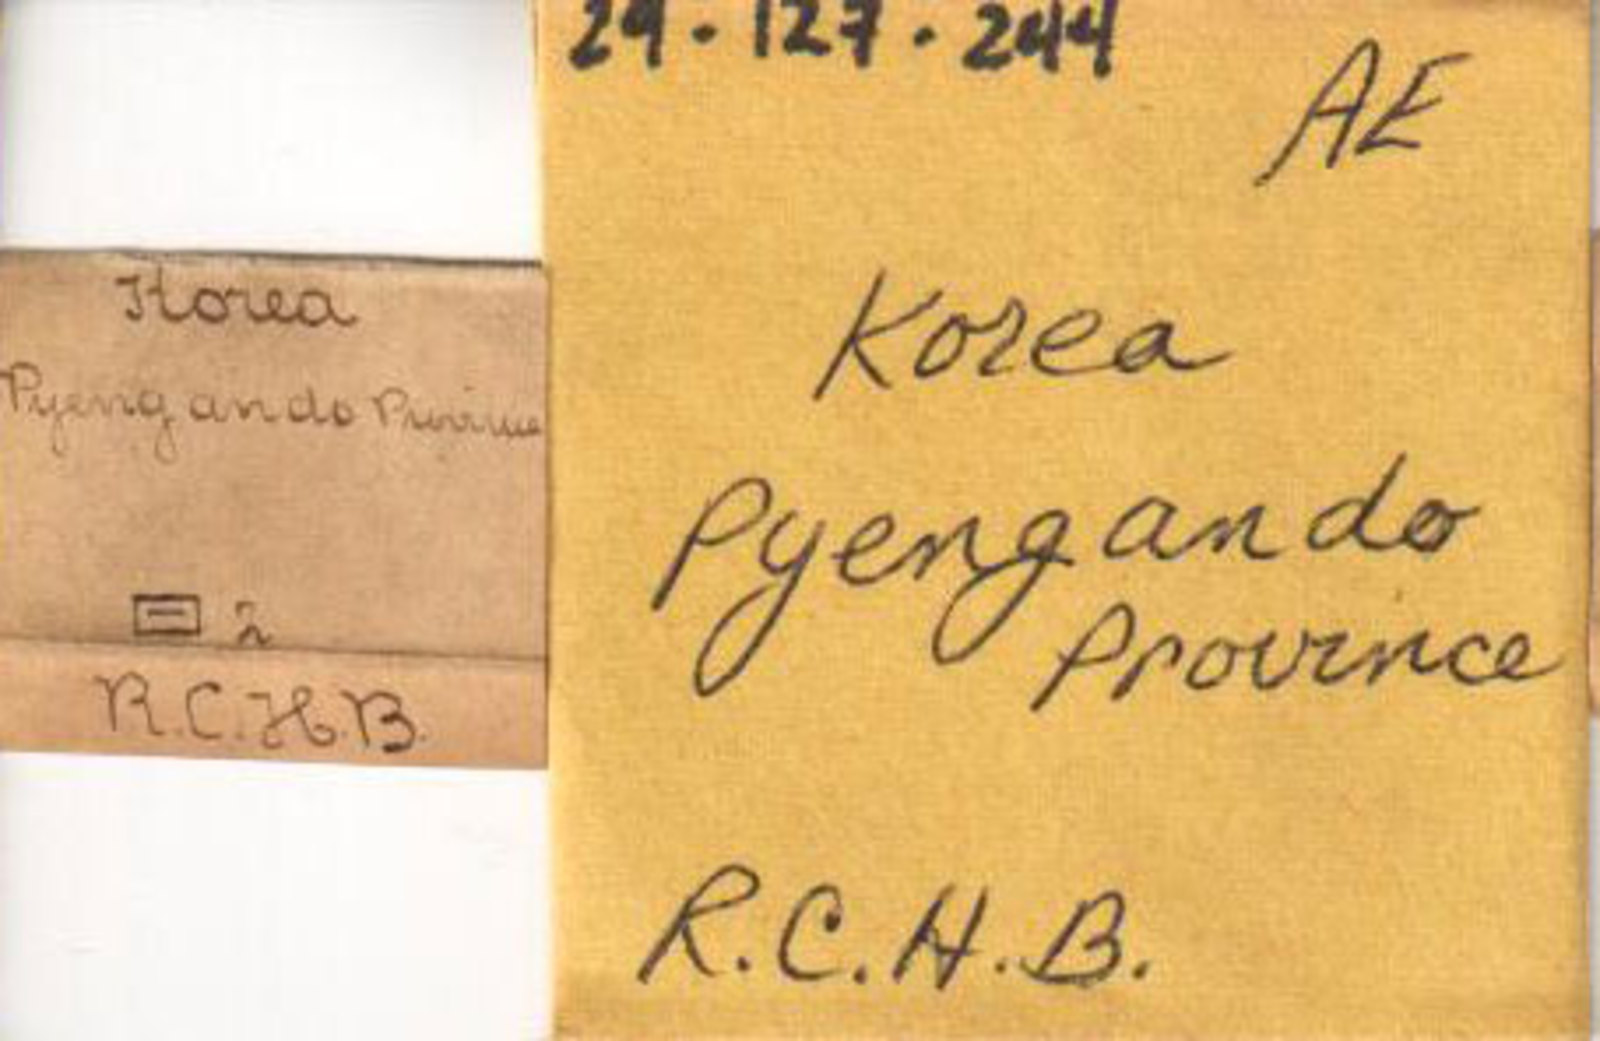 Korea
Pyengando Province
2
R.C.H.B.
29·127·244
AE
Korea
Pyengando
Province
R.C.H.B.